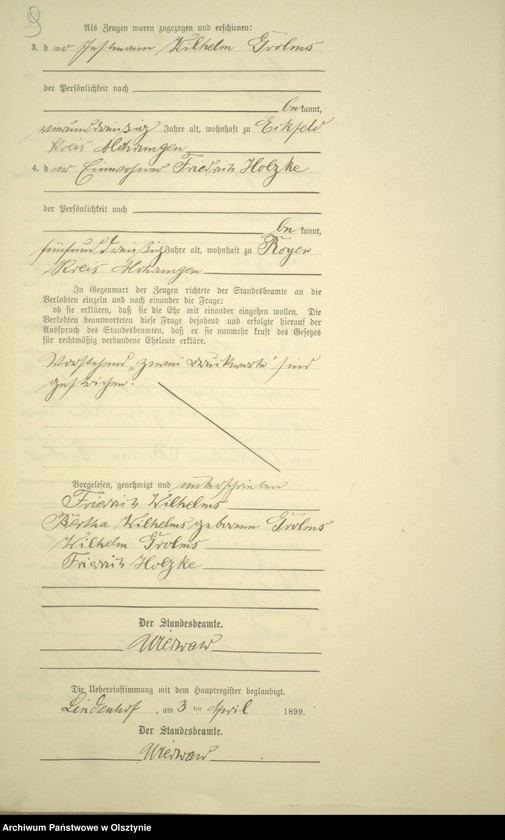 9
Als Zeugen waren zugezogen und erschienen:
3. d er Instmann Wilhelm Grolms
der Persönlichkeit nach
be kannt,
vierunddreißig Jahre alt, wohnhaft zu Eckfeld
Kreis Mohrungen
4. d er Einwohner Friedrich Holzke
der Persönlichkeit nach
be kannt,
fünfunddreißig Jahre alt, wohnhaft zu Royen
Kreis Mohrungen
In Gegenwart der Zeugen richtete der Standesbeamte an die
Verlobten einzeln und nach einander die Frage:
ob sie erklären, daß sie die Ehe mit einander eingehen wollen. Die
Verlobten beantworteten diese Frage bejahend und erfolgte hierauf der
Ausspruch des Standesbeamten, daß er sie nunmehr kraft des Gesetzes
für rechtmäßig verbundene Eheleute erkläre.
Vorstehend „zwei Druckworte" sind
gestrichen.
Vorgelesen, genehmigt und unterschrieben
Friedrich Wilhelms
Bertha Wilhelms geborene Grolms
Wilhelm Grolms
Friedrich Holzke
Der Standesbeamte.
Die Uebereinstimmung mit dem Hauptregister beglaubigt.
Lindenhof, am 3 ten April 1899.
Der Standesbeamte.
Archiwum Państwowe w Olsztynie